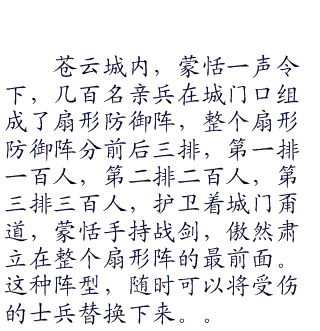 苍云城内，蒙恬一声令
下，几百名亲兵在城门口组
成了扇形防御阵，整个扇形
防御阵分前后三排，第一排
一百人，第二排二百人，第
三排三百人，护卫着城门甬
道，蒙恬手持战剑，傲然肃
立在整个扇形阵的最前面。
这种阵型，随时可以将受伤
的士兵替换下来。。